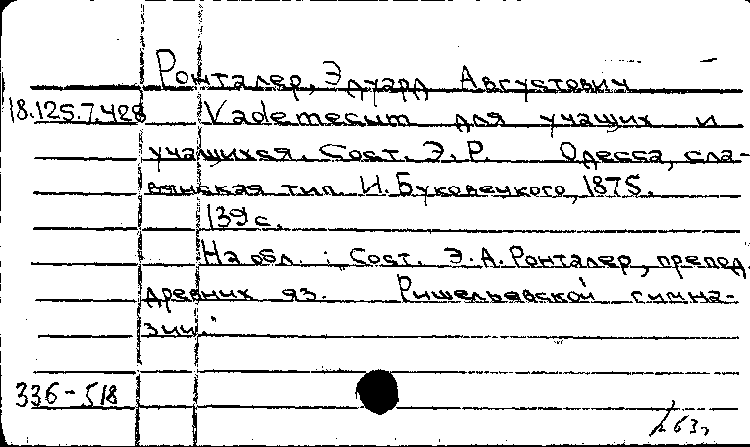 Ронталер, Эдуард Августович
18.125.7.428 Vademecum для учащих и
учащихся. Сост. Э. Р. Одесса, сла-
вянская тип. И. Буковецкого, 1875.
139 с.
На обл.: Сост. Э. А. Ронталер, препод.
древних яз. Ришельевской гимна-
зии.
336-518